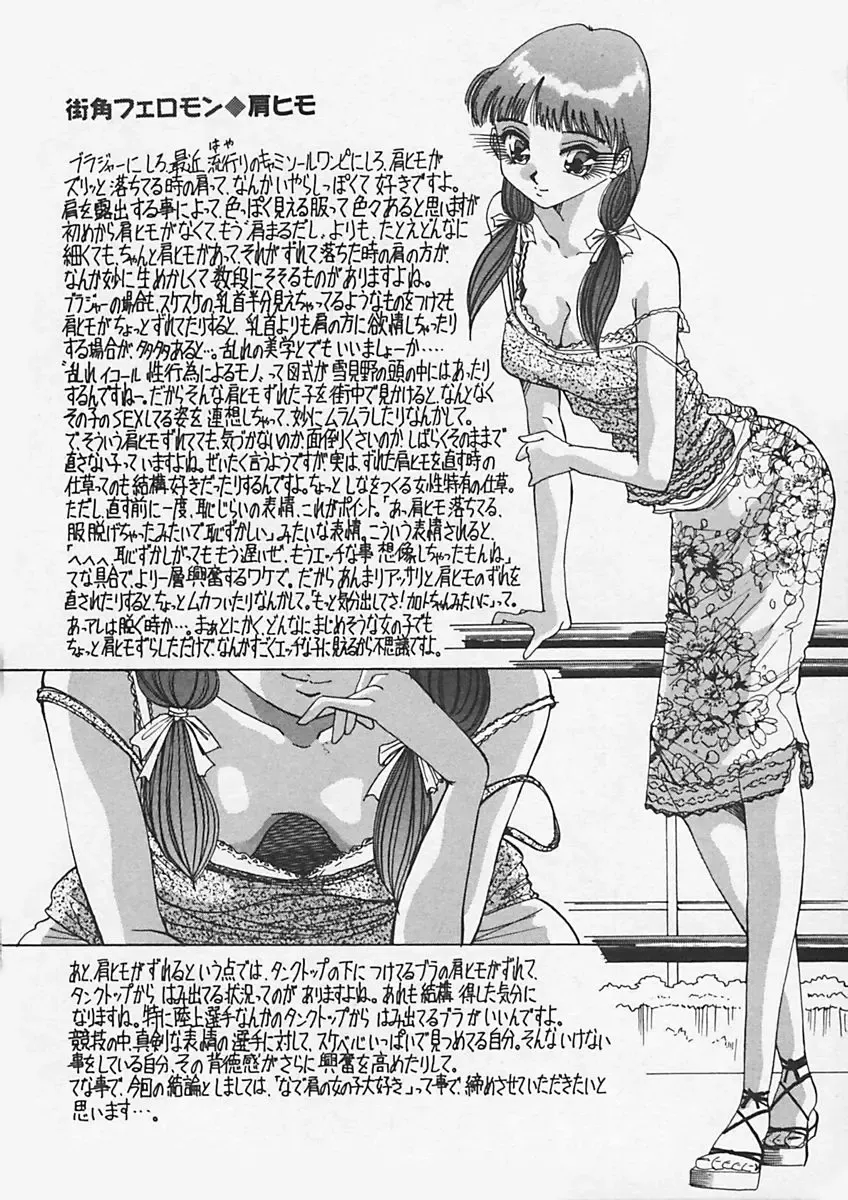 街角フェロモン◆肩ヒモ
ブラジャーにしろ、最近流行りのキャミソールワンピにしろ、肩ヒモが
はや
ズリッと落ちてる時の肩って、なんかいやらしっぽくて好きですよ。
肩を露出する事によって、色っぽく見える服って色々あると思いますが
初めから肩ヒモがなくて、もう"肩まるだし"よりも、たとえどんなに
細くても、ちゃんと肩ヒモがあって、それがずれて落ちた時の肩の方が、
なんか妙に生めかしくて数段にそそるものがありますよね。
ブラジャーの場合も、スケスケの、乳首半分見えちゃってるようなものをつけても
肩ヒモがちょっとずれてたりすると、乳首よりも肩の方に欲情しちゃったり
する場合が多々多々あると…。乱れの美学とでもいいましょーか‥‥
"乱れイコール性行為によるモノ"って図式が雪見野の頭の中にはあったり
するんですねー。だからそんな肩ヒモずれた子を街中で見かけると、なんとなく
その子のSEXしてる姿を連想しちゃって、妙にムラムラしたりなんかして。
で、そういう肩ヒモずれてても、気づかないのか、面倒りくさいのか、しばらくそのままで
直さない子っていますよね。ぜいたく言うようですが実は、ずれた肩ヒモを直す時の
仕草ってのも結構好きだったりするんですよ。ちょっとしなをつくる女性特有の仕草。
ただし、直す前に一度、恥じらいの表情、これがポイント。「あっ、肩ヒモ落ちてる、
服脱げちゃったみたいで恥ずかしい」みたいな表情。こういう表情されると、
「へへへ、恥ずかしがってももう遅いぜ、もうエッチな事想像しちゃったもんね」
てな具合で、より一層興奮するワケで。だからあんまりアッサリと肩ヒモのずれを
直されたりすると、ちょっとムカついたりなんかして。"もっと気分出してさ!加トちゃんみたいに"って。
あ、アレは脱ぐ時か…。まぁとにかくどんなにまじめそうな女の子でも
ちょっと肩ヒモずらしただけで、なんかすごくエッチな子に見えるから不思議ですよ。
あと、肩ヒモがずれるという点では、タンクトップの下につけてるブラの肩ヒモがずれて、
タンクトップからはみ出てる状況ってのがありますよね。あれも結構得した気分に
なりますね。特に陸上選手なんかのタンクトップからはみ出てるブラがいいんですよ。
競技の中、真剣な表情の選手に対して、スケベ心いっぱいで見つめてる自分。そんないけない
事をしている自分、その背徳感がさらに興奮を高めたりして。
てな事で、今回の結論としましては、「なで肩の女の子大好き」って事で、締めさせていただきたいと
思います…。